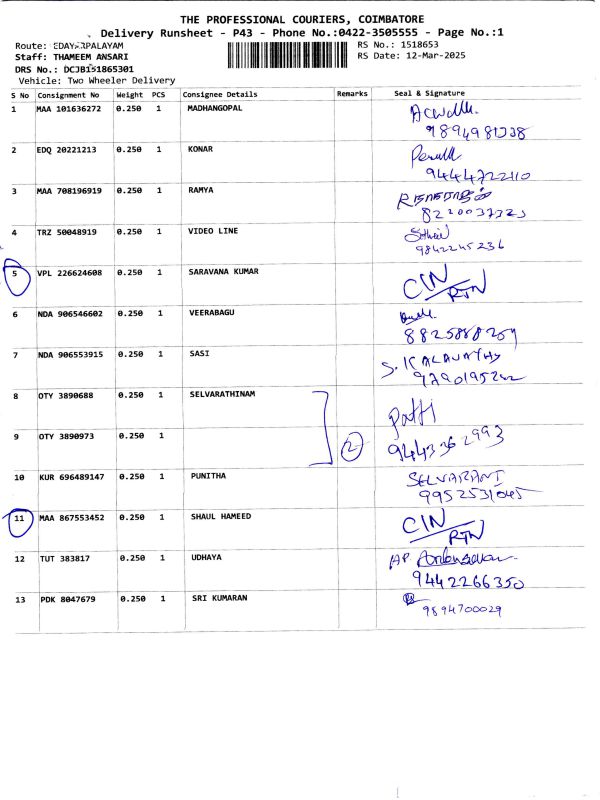 THE PROFESSIONAL COURIERS, COIMBATORE
Delivery Runsheet - P43 - Phone No.:0422-3505555 - Page No.:1
Route: EDAYARPALAYAM
RS No.: 1518653
Staff: THAMEEM ANSARI
RS Date: 12-Mar-2025
DRS No.: DCJB151865301
Vehicle: Two Wheeler Delivery
S No Consignment No Weight PCS Consignee Details Remarks Seal & Signature
1 MAA 101636272 0.250 1 MADHANGOPAL
2 EDQ 20221213 0.250 1 KONAR
94447 22110
3 MAA 708196919 0.250 1 RAMYA
4 TRZ 50048919 0.250 1 VIDEO LINE
9842245236
5 VPL 226624608 0.250 1 SARAVANA KUMAR CIN/RTN
6 NDA 906546602 0.250 1 VEERABAGU
7 NDA 906553915 0.250 1 SASI S. KALAVATHY
8 OTY 3890688 0.250 1 SELVARATHINAM
9 OTY 3890973 0.250 1 2 9443362993
10 KUR 696489147 0.250 1 PUNITHA SELVARANI
9952531045
11 MAA 867553452 0.250 1 SHAUL HAMEED CIN/RTN
12 TUT 383817 0.250 1 UDHAYA
9442266350
13 PDK 8047679 0.250 1 SRI KUMARAN
9894700029